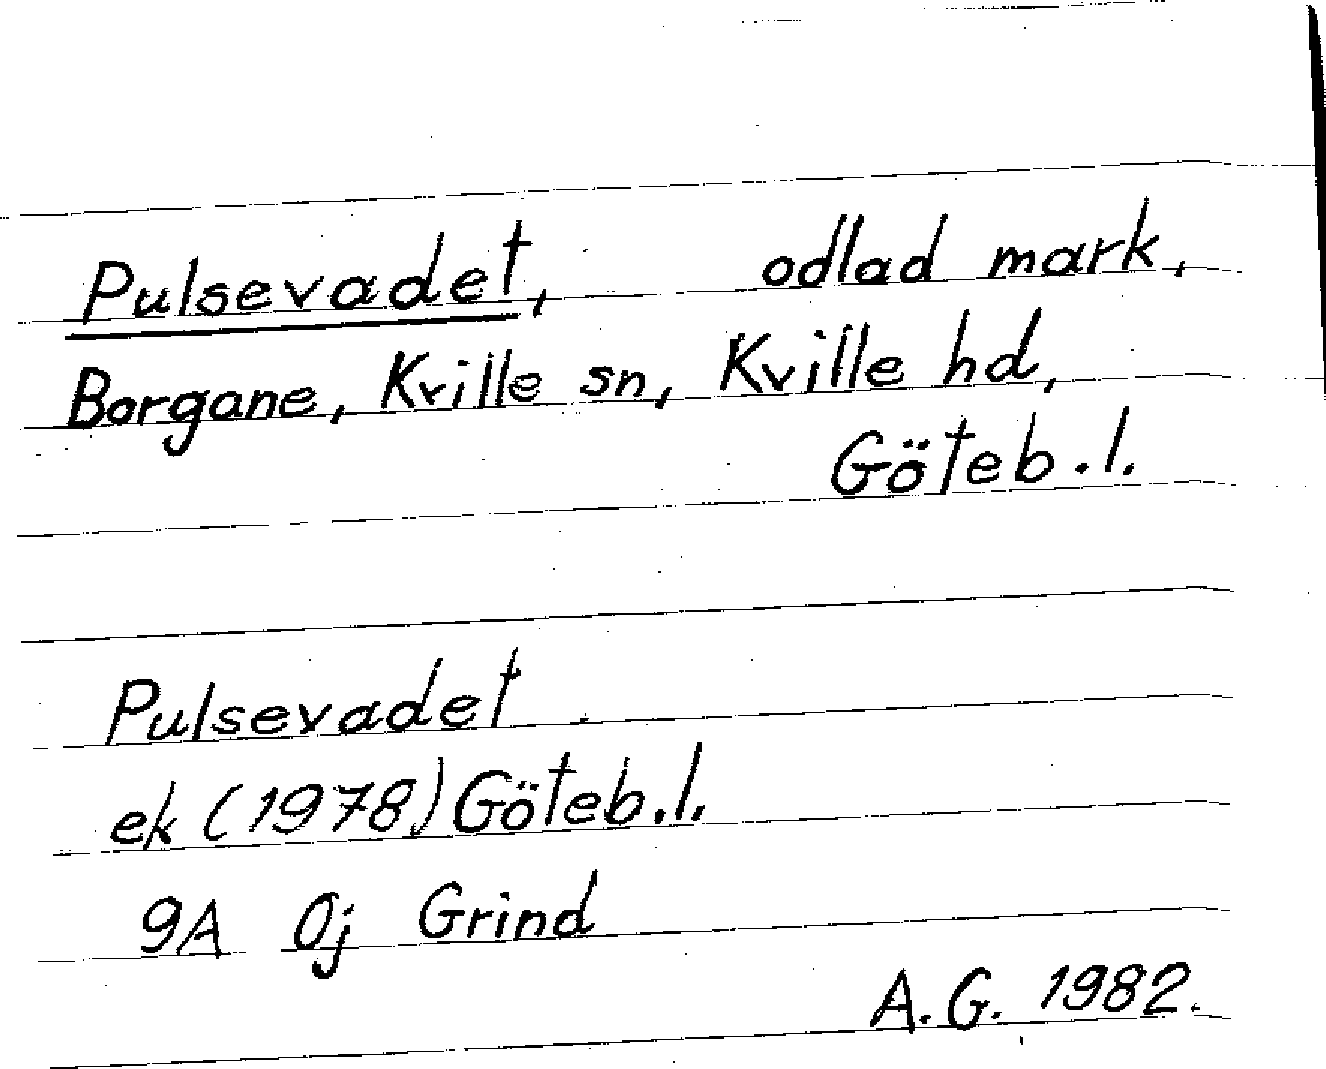 Pulsevadet, odlad mark,
Borgane, Kville sn, Kville hd,
Göteb. l.
Pulsevadet
ek (1978) Göteb. l.
9A 0j Grind
A. G. 1982.